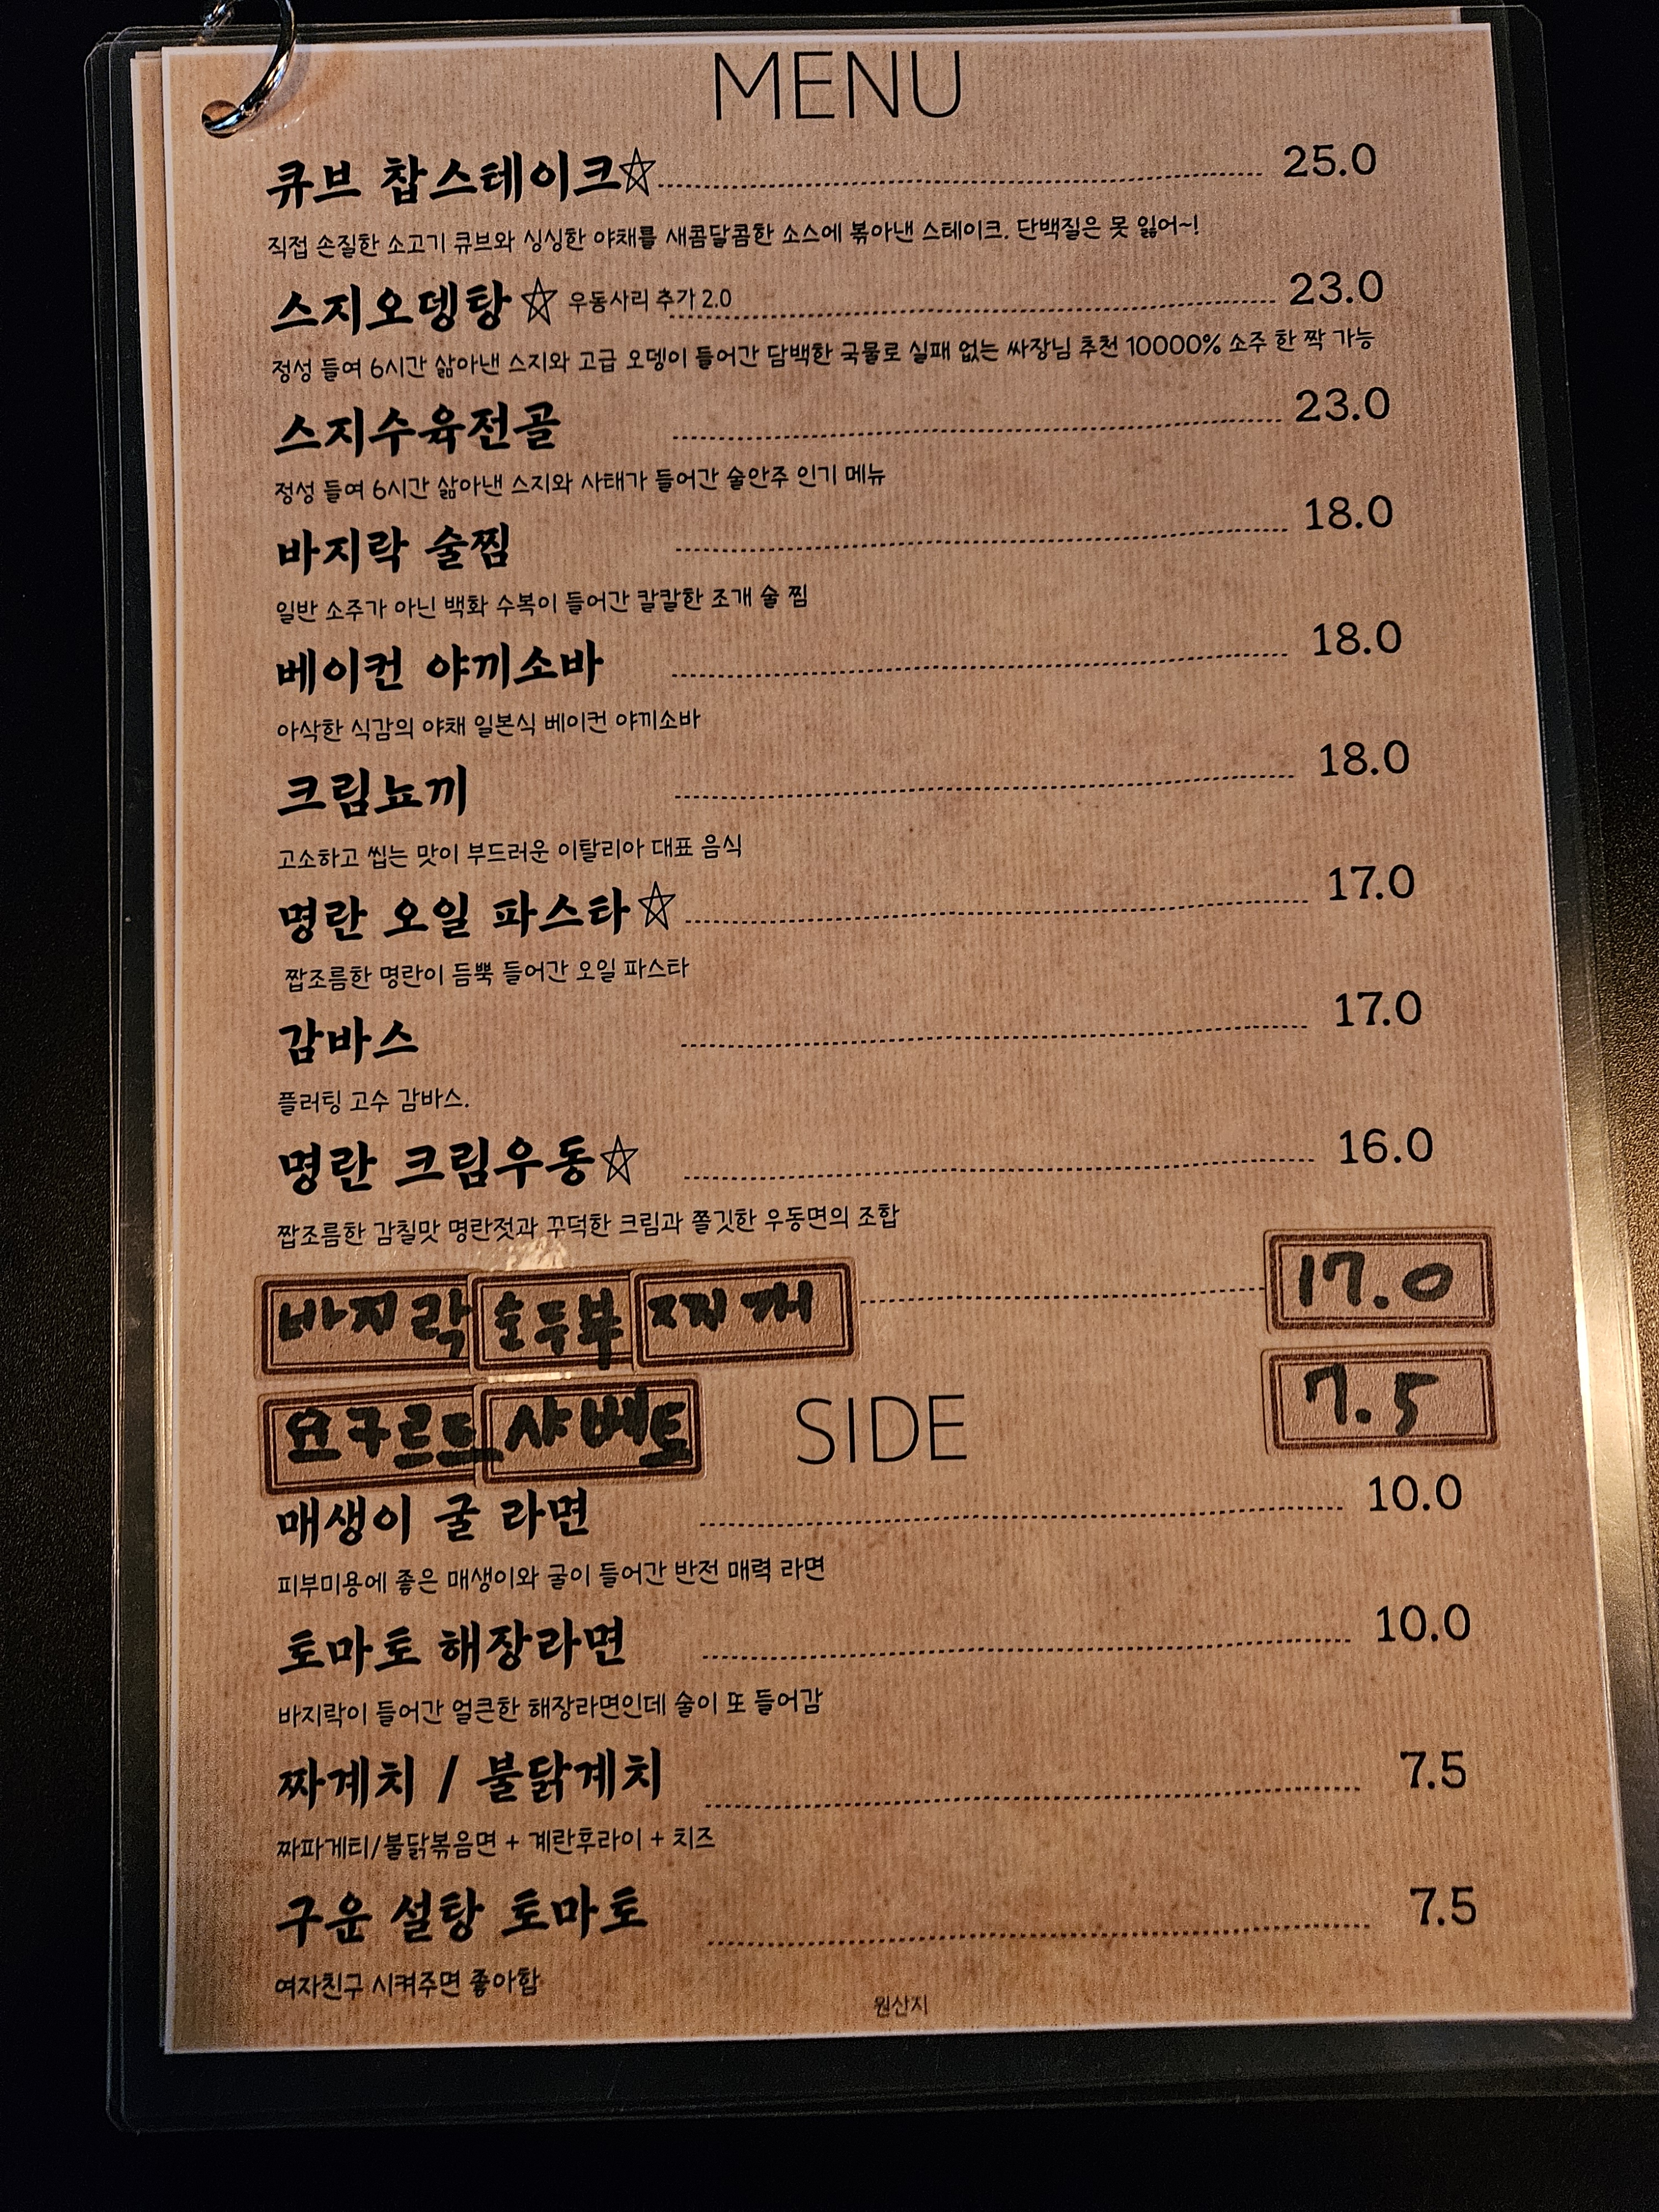 MENU
큐브 찹스테이크☆ 25.0
직접 손질한 소고기 큐브와 싱싱한 야채를 새콤달콤한 소스에 볶아낸 스테이크. 단백질은 못 잃어~!
스지오뎅탕☆ 우동사리 추가 2.0 23.0
정성 들여 6시간 삶아낸 스지와 고급 오뎅이 들어간 담백한 국물로 실패 없는 싸장님 추천 10000% 소주 한 짝 가능
스지수육전골 23.0
정성 들여 6시간 삶아낸 스지와 사태가 들어간 술안주 인기 메뉴
바지락 술찜 18.0
일반 소주가 아닌 백화 수복이 들어간 칼칼한 조개 술 찜
베이컨 야끼소바 18.0
아삭한 식감의 야채 일본식 베이컨 야끼소바
크림뇨끼 18.0
고소하고 씹는 맛이 부드러운 이탈리아 대표 음식
명란 오일 파스타☆ 17.0
짭조름한 명란이 듬뿍 들어간 오일 파스타
감바스 17.0
플러팅 고수 감바스.
명란 크림우동☆ 16.0
짭조름한 감칠맛 명란젓과 꾸덕한 크림과 쫄깃한 우동면의 조합
바지락 순두부 찌개 17.0
요구르트 샤베트 7.5
SIDE
매생이 굴 라면 10.0
피부미용에 좋은 매생이와 굴이 들어간 반전 매력 라면
토마토 해장라면 10.0
바지락이 들어간 얼큰한 해장라면인데 술이 또 들어감
짜계치 / 불닭계치 7.5
짜파게티/불닭볶음면 + 계란후라이 + 치즈
구운 설탕 토마토 7.5
여자친구 시켜주면 좋아함
원산지